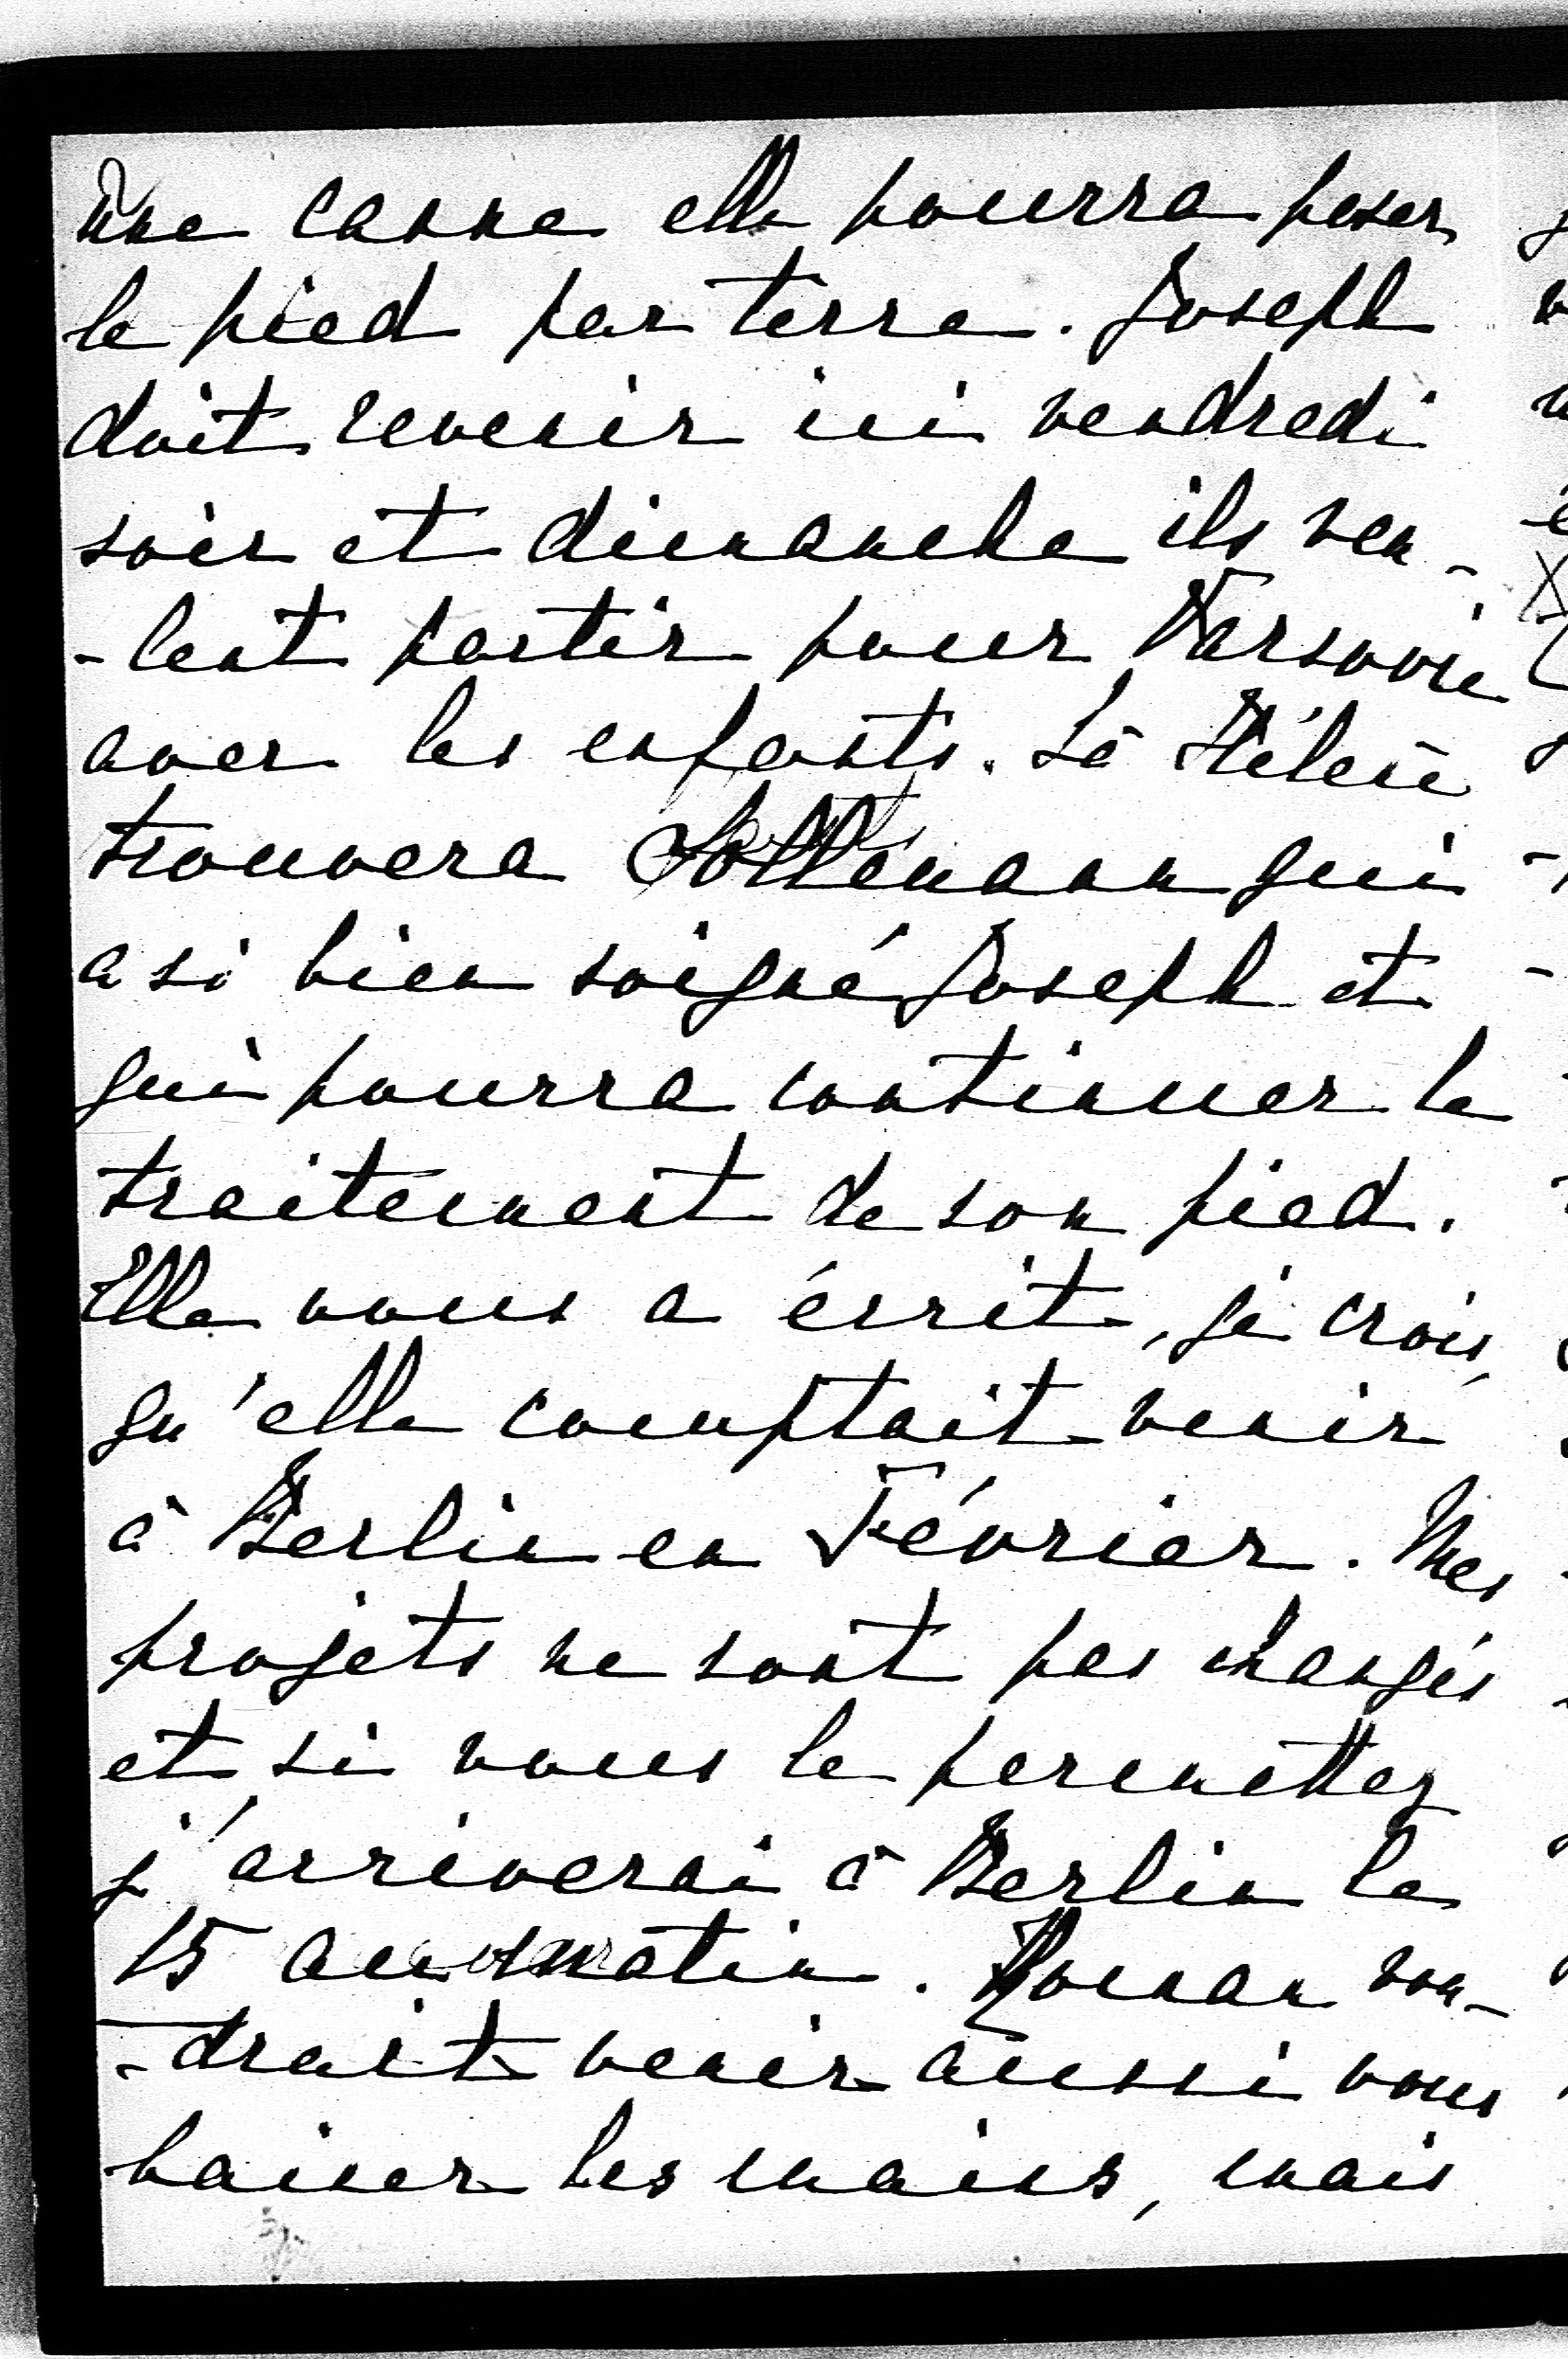 une canne elle pourra poser
le pied par terre. Joseph
doit revenir ici vendredi
soir et dimanche ils veu-
-lent partir pour Varsovie
avec les enfants. Là Hélène
trouvera qui
a si bien soigné Joseph et
qui pourra continuer le
traitement de son pied.
Elle vous a écrit, je crois,
qu'elle comptait venir
à Berlin en Février. Mes
projets ne sont pas changés
et si vous le permettez
j'arriverai à Berlin le
15 au matin. Roman vou-
-drait venir aussi vous
baiser les mains, mais